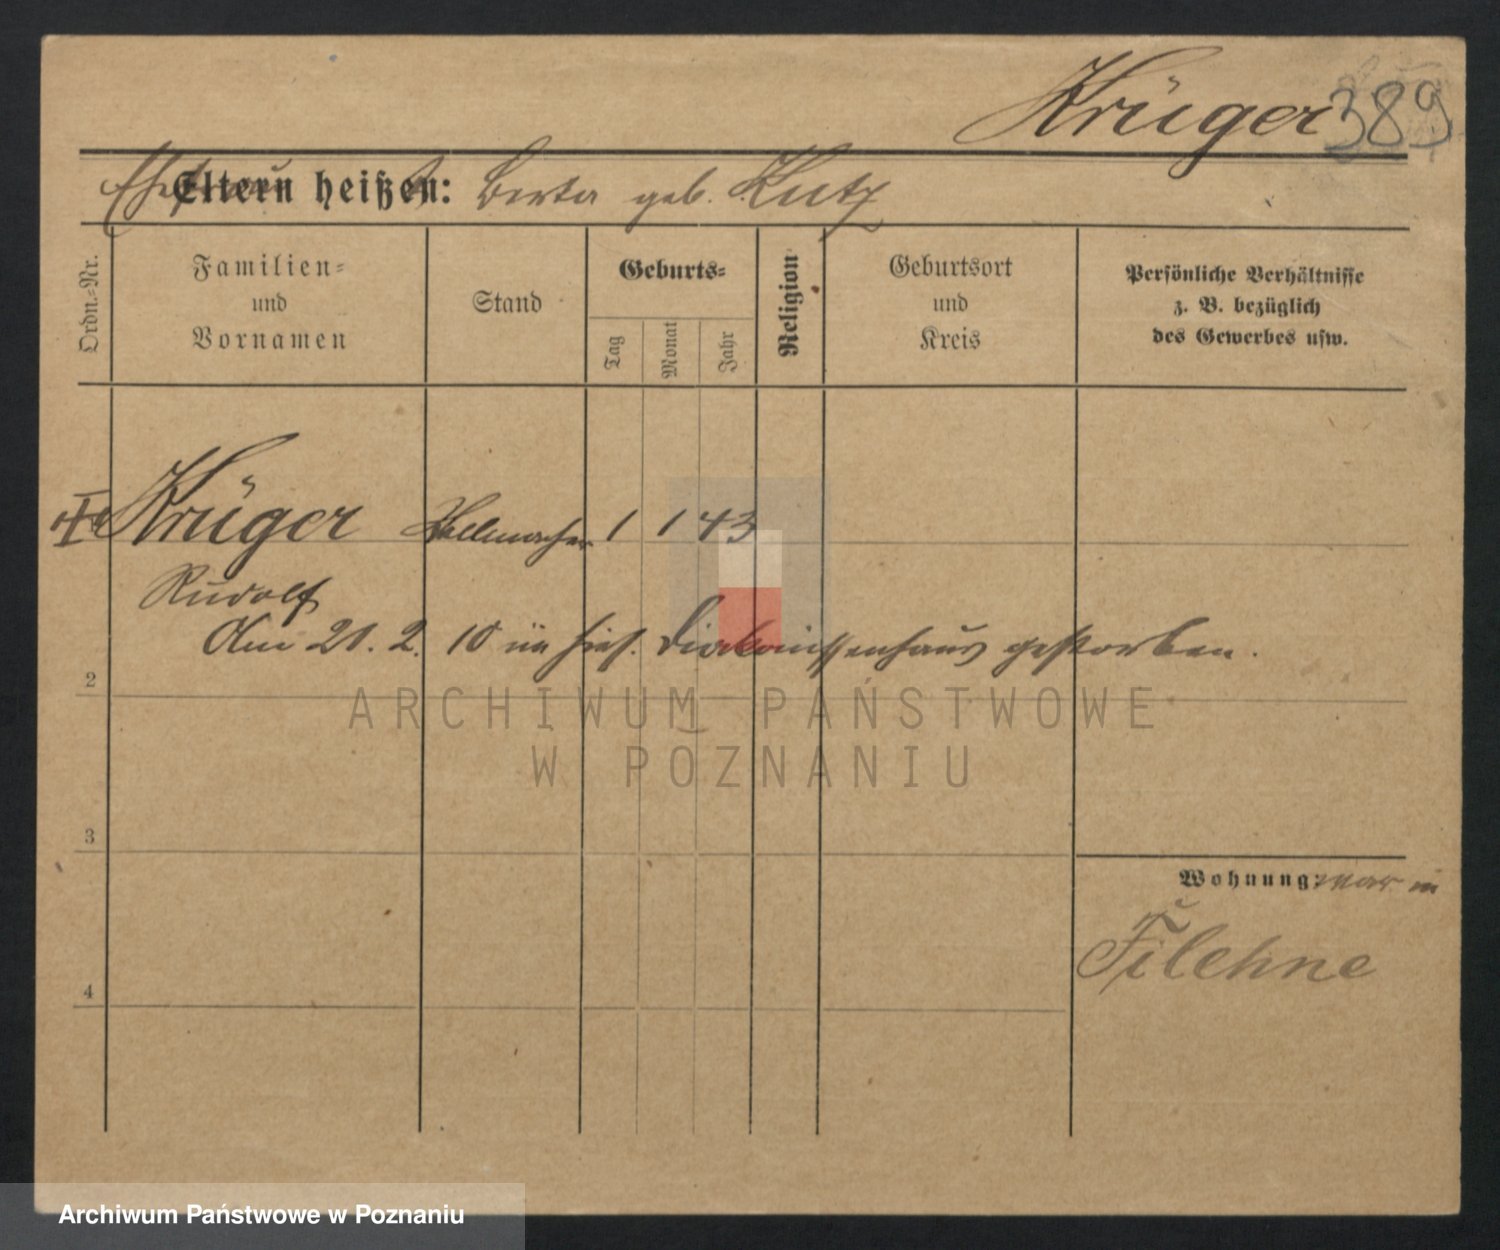 Krüger 389
Ehefrau Eltern heißen: Berta geb. Kutz
Ordn.-Nr.
Familien-
und
Vornamen
Stand
Geburts-
Tag
Monat
Jahr
Religion
Geburtsort
und
Kreis
Persönliche Verhältnisse
z. B. bezüglich
des Gewerbes usw.
I Krüger Stellmacher 1 1 43
Rudolf
Am 21. 2. 10 im hies. Diakonissenhaus gestorben.
2
ARCHIWUM PAŃSTWOWE
W POZNANIU
3
Wohnung: war in
Filehne
4
Archiwum Państwowe w Poznaniu